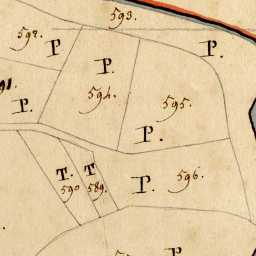 593.
592.
P
P.
P.
91.
P.
594.
595.
P.
T.
T
590
589.
P.
596.
P